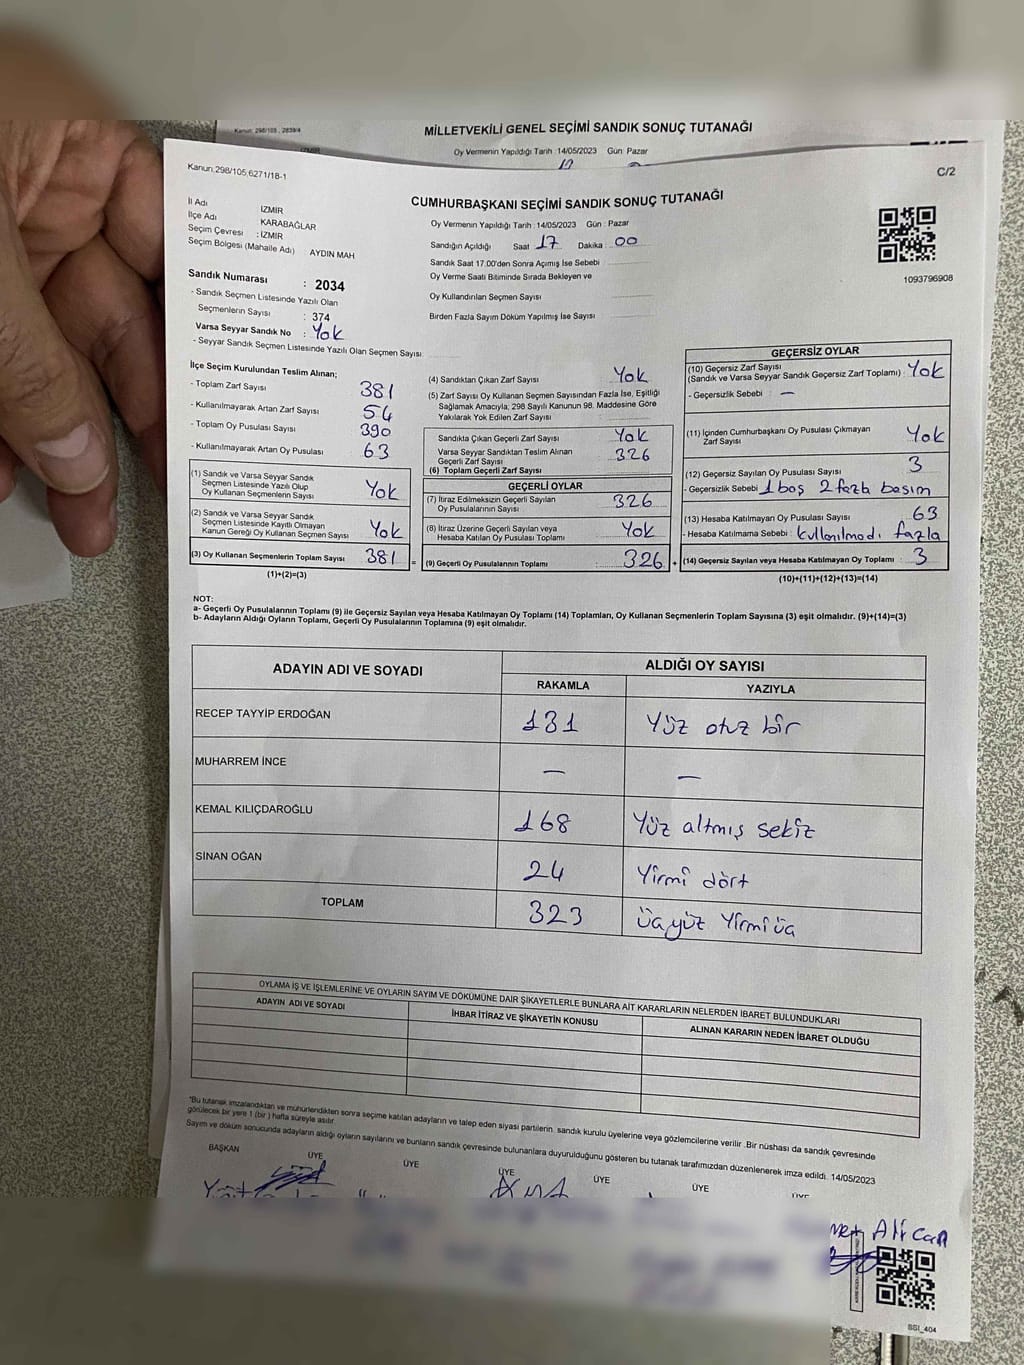 Kanun: 298/105, 2839/4
MİLLETVEKİLİ GENEL SEÇİMİ SANDIK SONUÇ TUTANAĞI
Oy Vermenin Yapıldığı Tarih :14/05/2023 Gün: Pazar
Kanun:298/105,6271/18-1
C/2
CUMHURBAŞKANI SEÇİMİ SANDIK SONUÇ TUTANAĞI
İl Adı İZMİR
İlçe Adı KARABAĞLAR
Seçim Çevresi : İZMİR
Seçim Bölgesi (Mahalle Adı) : AYDIN MAH
Oy Vermenin Yapıldığı Tarih :14/05/2023 Gün : Pazar
Sandığın Açıldığı Saat 17 Dakika : 00
Sandık Saat 17:00'den Sonra Açılmış İse Sebebi
Oy Verme Saati Bitiminde Sırada Bekleyen ve
Oy Kullandırılan Seçmen Sayısı
Birden Fazla Sayım Döküm Yapılmış İse Sayısı
1093796908
Sandık Numarası : 2034
- Sandık Seçmen Listesinde Yazılı Olan
Seçmenlerin Sayısı : 374
Varsa Seyyar Sandık No : Yok
- Seyyar Sandık Seçmen Listesinde Yazılı Olan Seçmen Sayısı:
İlçe Seçim Kurulundan Teslim Alınan;
- Toplam Zarf Sayısı 381
- Kullanılmayarak Artan Zarf Sayısı 54
- Toplam Oy Pusulası Sayısı 390
- Kullanılmayarak Artan Oy Pusulası 63
(1) Sandık ve Varsa Seyyar Sandık
Seçmen Listesinde Yazılı Olup
Oy Kullanan Seçmenlerin Sayısı Yok
(2) Sandık ve Varsa Seyyar Sandık
Seçmen Listesinde Kayıtlı Olmayan
Kanun Gereği Oy Kullanan Seçmen Sayısı Yok
(3) Oy Kullanan Seçmenlerin Toplam Sayısı 381 =
(1)+(2)=(3)
(4) Sandıktan Çıkan Zarf Sayısı Yok
(5) Zarf Sayısı Oy Kullanan Seçmen Sayısından Fazla İse, Eşitliği
Sağlamak Amacıyla; 298 Sayılı Kanunun 98. Maddesine Göre
Yakılarak Yok Edilen Zarf Sayısı
Sandıkta Çıkan Geçerli Zarf Sayısı Yok
Varsa Seyyar Sandıktan Teslim Alınan
Geçerli Zarf Sayısı 326
(6) Toplam Geçerli Zarf Sayısı
GEÇERLİ OYLAR
(7) İtiraz Edilmeksizin Geçerli Sayılan
Oy Pusulalarının Sayısı 326
(8) İtiraz Üzerine Geçerli Sayılan veya
Hesaba Katılan Oy Pusulası Toplamı Yok
(9) Geçerli Oy Pusulalarının Toplamı 326 +
GEÇERSİZ OYLAR
(10) Geçersiz Zarf Sayısı
(Sandık ve Varsa Seyyar Sandık Geçersiz Zarf Toplamı) : Yok
- Geçersizlik Sebebi : —
(11) İçinden Cumhurbaşkanı Oy Pusulası Çıkmayan
Zarf Sayısı Yok
(12) Geçersiz Sayılan Oy Pusulası Sayısı 3
- Geçersizlik Sebebi 1 boş 2 fazla basım
(13) Hesaba Katılmayan Oy Pusulası Sayısı 63
- Hesaba Katılmama Sebebi : kullanılmadı fazla
(14) Geçersiz Sayılan veya Hesaba Katılmayan Oy Toplamı : 3
(10)+(11)+(12)+(13)=(14)
NOT:
a- Geçerli Oy Pusulalarının Toplamı (9) ile Geçersiz Sayılan veya Hesaba Katılmayan Oy Toplamı (14) Toplamları, Oy Kullanan Seçmenlerin Toplam Sayısına (3) eşit olmalıdır. (9)+(14)=(3)
b- Adayların Aldığı Oyların Toplamı, Geçerli Oy Pusulalarının Toplamına (9) eşit olmalıdır.
ADAYIN ADI VE SOYADI ALDIĞI OY SAYISI
RAKAMLA YAZIYLA
RECEP TAYYİP ERDOĞAN 131 Yüz otuz bir
MUHARREM İNCE — —
KEMAL KILIÇDAROĞLU 168 Yüz altmış sekiz
SİNAN OĞAN 24 Yirmi dört
TOPLAM 323 üçyüz Yirmi üç
OYLAMA İŞ VE İŞLEMLERİNE VE OYLARIN SAYIM VE DÖKÜMÜNE DAİR ŞİKAYETLERLE BUNLARA AİT KARARLARIN NELERDEN İBARET BULUNDUKLARI
ADAYIN ADI VE SOYADI İHBAR İTİRAZ VE ŞİKAYETİN KONUSU ALINAN KARARIN NEDEN İBARET OLDUĞU
*Bu tutanak imzalandıktan ve mühürlendikten sonra seçime katılan adayların ve talep eden siyasi partilerin, sandık kurulu üyelerine veya gözlemcilerine verilir .Bir nüshası da sandık çevresinde
görülecek bir yere 1 (bir ) hafta süreyle asılır.
Sayım ve döküm sonucunda adayların aldığı oyların sayılarını ve bunların sandık çevresinde bulunanlara duyurulduğunu gösteren bu tutanak tarafımızdan düzenlenerek imza edildi. 14/05/2023
BAŞKAN ÜYE ÜYE ÜYE ÜYE ÜYE ÜYE
Ali Can
SSI_404